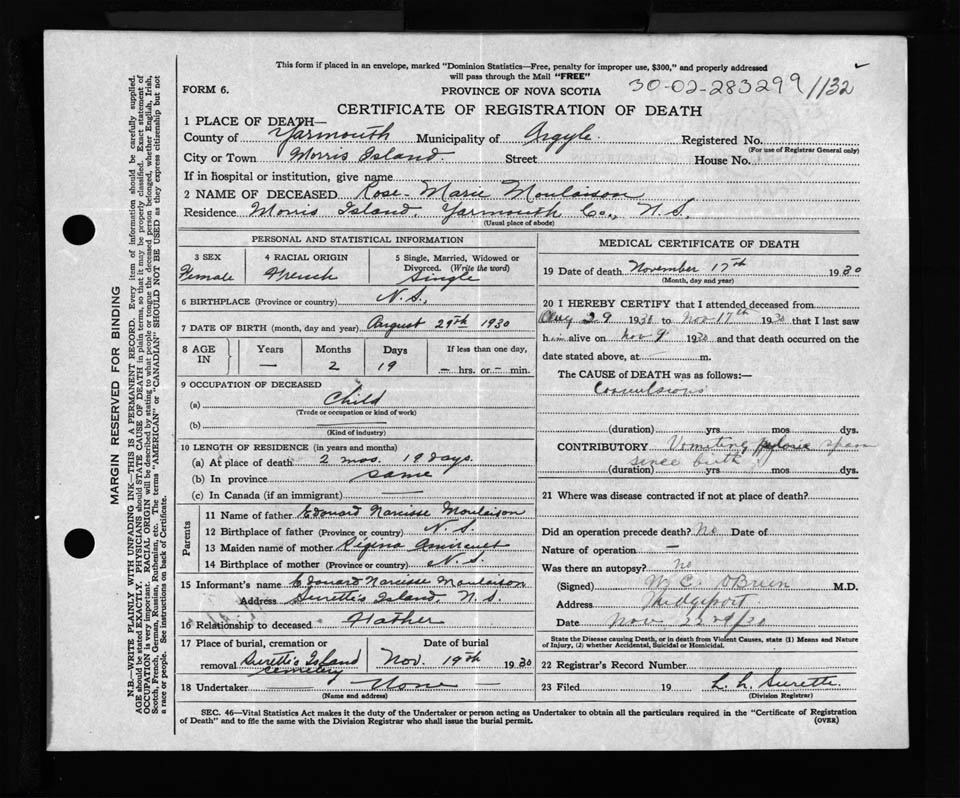 This form if placed in an envelope, marked "Dominion Statistics—Free, penalty for improper use, $300," and properly addressed
will pass through the Mail "FREE"
FORM 6. PROVINCE OF NOVA SCOTIA 30-02-283299 1132
CERTIFICATE OF REGISTRATION OF DEATH
1 PLACE OF DEATH—
County of Yarmouth Municipality of Argyle. Registered No.
(For use of Registrar General only)
City or Town Morris Island. Street House No.
If in hospital or institution, give name
2 NAME OF DECEASED Rose-Marie Moulaison
Residence Morris Island, Yarmouth Co., N.S.
(Usual place of abode)
PERSONAL AND STATISTICAL INFORMATION
3 SEX 4 RACIAL ORIGIN 5 Single, Married, Widowed or
Divorced. (Write the word)
Female French Single
6 BIRTHPLACE (Province or country) N.S.,
7 DATE OF BIRTH (month, day and year) August 29th 1930
8 AGE IN Years Months Days If less than one day,
— 2 19 — hrs. or — min.
9 OCCUPATION OF DECEASED
(a) Child
(Trade or occupation or kind of work)
(b)
(Kind of industry)
10 LENGTH OF RESIDENCE (in years and months)
(a) At place of death 2 mos. 19 days.
(b) In province same
(c) In Canada (if an immigrant) —
Parents
11 Name of father Edouard Narcisse Moulaison
12 Birthplace of father (Province or country) N.S.
13 Maiden name of mother Regina
14 Birthplace of mother (Province or country) N.S.
15 Informant's name Edouard Narcisse Moulaison
Address Surette's Island, N.S.
16 Relationship to deceased Father
17 Place of burial, cremation or Date of burial
removal Surette's Island cemetery Nov. 19th 1930
18 Undertaker None
(Name and address)
MEDICAL CERTIFICATE OF DEATH
19 Date of death November 17th 1930
(Month, day and year)
20 I HEREBY CERTIFY that I attended deceased from
Aug 29 1930 to Nov 17th 1930 that I last saw
him alive on Nov 9 1930 and that death occurred on the
date stated above, at — m.
The CAUSE of DEATH was as follows:—
Convulsions
(duration) yrs mos dys.
CONTRIBUTORY Vomiting pyloric spasm
since birth
(duration) yrs mos dys.
21 Where was disease contracted if not at place of death?
Did an operation precede death? No Date of
Nature of operation —
Was there an autopsy? No
(Signed) W C O'Brien M.D.
Address Wedgeport
Date Nov 22nd/30
State the Disease causing Death, or in death from Violent Causes, state (1) Means and Nature
of Injury, (2) whether Accidental, Suicidal or Homicidal.
22 Registrar's Record Number
23 Filed 19 L. L. Surette
(Division Registrar)
SEC. 46—Vital Statistics Act makes it the duty of the Undertaker or person acting as Undertaker to obtain all the particulars required in the "Certificate of Registration
of Death" and to file the same with the Division Registrar who shall issue the burial permit. (OVER)
MARGIN RESERVED FOR BINDING
N.B.—WRITE PLAINLY WITH UNFADING INK—THIS IS A PERMANENT RECORD. Every item of information should be carefully supplied.
AGE should be stated EXACTLY. PHYSICIANS should STATE CAUSE OF DEATH in plain terms, so that it may be properly classified. Exact statement of
OCCUPATION is very important. RACIAL ORIGIN will be described by stating to what people or tongue the deceased person belonged, whether English, Irish,
Scotch, French, German, Russian, Ruthenian, etc. The terms "AMERICAN" or "CANADIAN" SHOULD NOT BE USED as they express citizenship but not
a race or people. See instructions on back of Certificate.